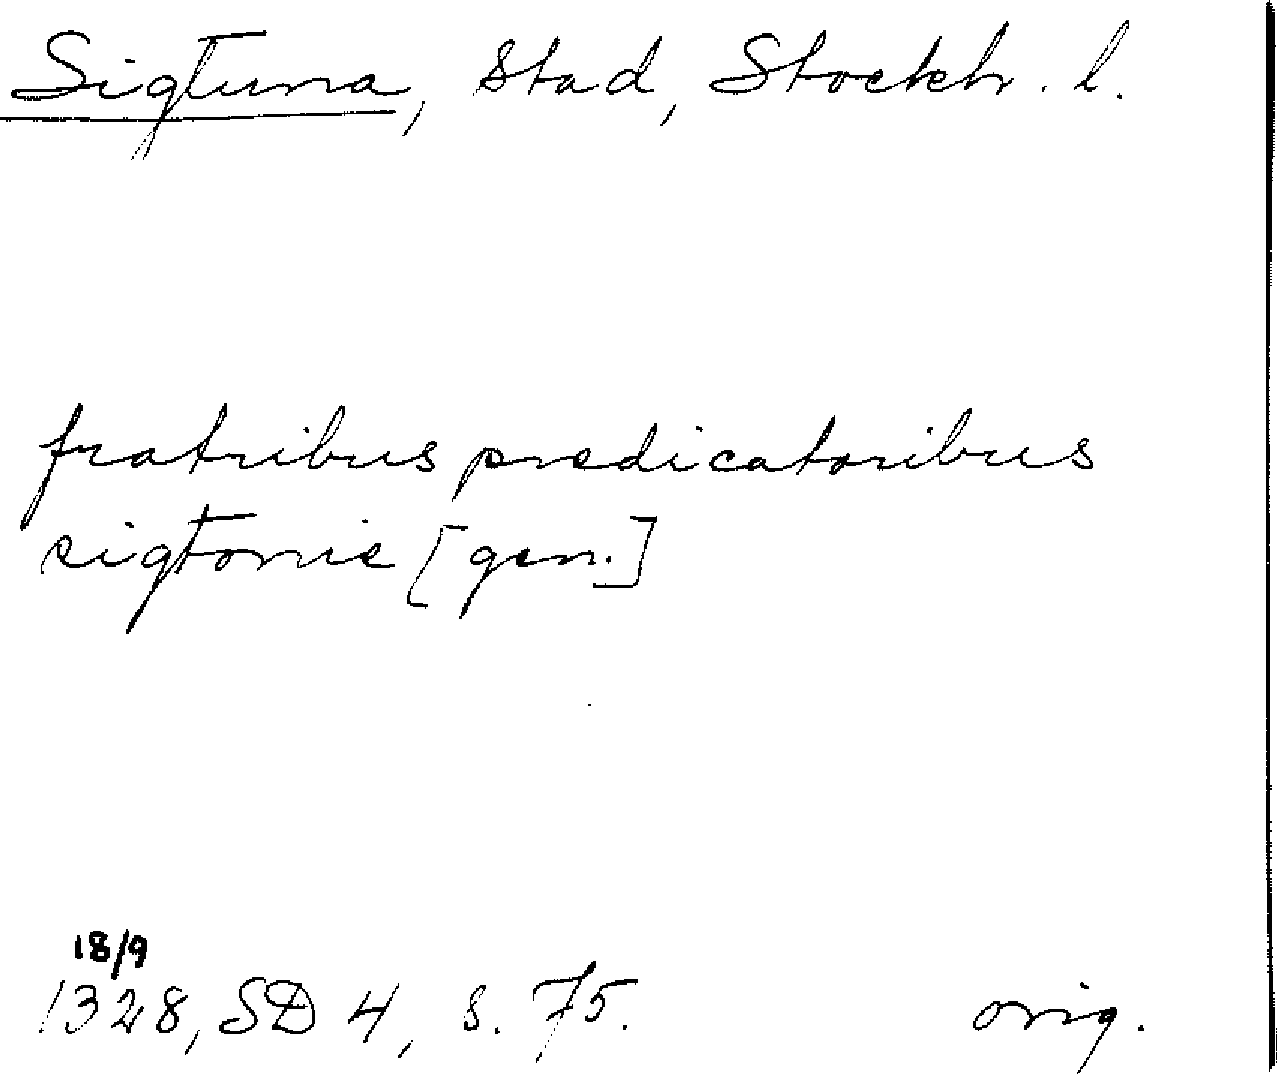 Sigtuna, stad, Stockh. l.
fratribus predicatoribus
sigtonie [gen.]
18/9
1328, SD 4, s. 75.
orig.